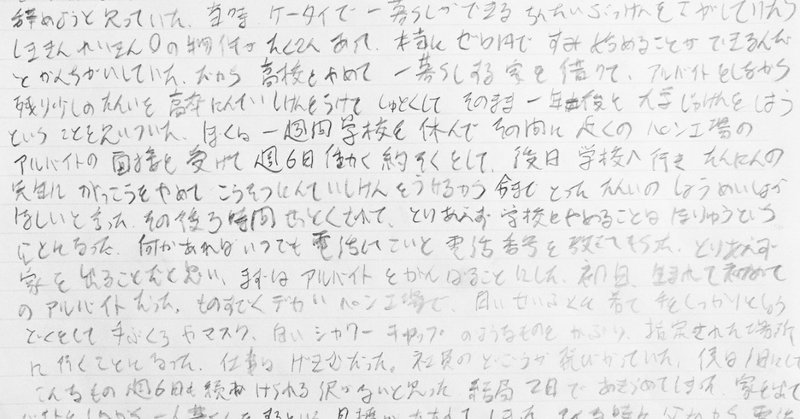 辞めようと思っていた。当時 ケータイで 一人暮らしができる ちんたいぶっけんをさがしていたら
しききん れいきん0の物件が たくさん あって、本当に ゼロ円で すみ始めることが できるんだ
と かんちがいしていた。だから 高校をやめて 一人暮らしする 家を 借りて、アルバイトをしながら
残り少しのたんいを 高卒にんていしけんをうけて しゅとくして そのまま 一年後と 大学じゅけんを しよう
ということを思いついた。ぼくは 一週間 学校を 休んで その間に 近くの パン工場の
アルバイトの 面接を 受けて 週6日 働く 約そくをして、後日 学校へ 行き たんにんの
先生に がっこうをやめて こうそつにんていしけんをうけるから 今まで とった たんいの しょうめいしょが
ほしいと言った。その後3時間 せっとくされて、とりあえず 学校をやめることは ほりゅうという
ことになった。何かあれば いつでも 電話してこいと 電話番号を 教えてもらった。とりあえず
家を 出ることだと思い、まずは アルバイトを がんばることにした。初日、生まれて初めて
の アルバイトだった。ものすごく デカい パン工場で、白い せいふくを 着て 手をしっかりとしょう
どくをして 手ぶくろやマスク、白い シャワーキャップのようなものを かぶり、指定された場所
に 行くことになった。仕事は げきむだった。社員の どごうが 飛びかっていた。僕は1日にして
こんなもの 週6日も 続けられる 訳がないと思った 結局 2日で あきらめてしまった 家を出て